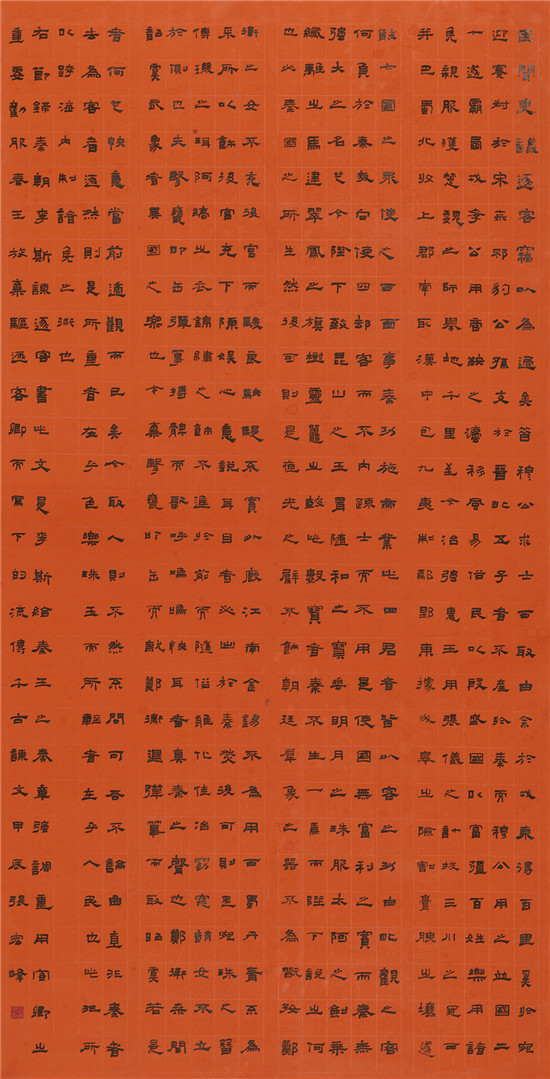 臣聞吏議逐客竊以為過矣昔穆公求士西取由余於戎東得百里奚於宛
迎蹇叔於宋來邳豹公孫支於晉此五子者不產於秦而穆公用之并國二
十遂霸西戎孝公用商鞅之灋移風易俗民以殷盛國以富彊百姓樂用諸
侯親服獲楚魏之師舉地千里至今治強惠王用張儀之計拔三川之地西
并巴蜀北收上郡南取漢中包九夷制鄢郢東據成皋之險割膏腴之壤遂
散六國之從使之西面事秦功施帝業此四君者皆以客之功由此觀之客
何負於秦哉向使四却客而不內疏士而不用是使國無富利之實而秦無
強大之名也今陛下致昆山之玉有隨和之寶垂明月之珠服太阿之劍乘
纖離之馬建翠鳳之旗樹靈鼉之鼓此數寶者秦不生一焉而陛下說之何
也必秦國之所生然後可則是夜光之璧不飾朝廷犀象之器不為玩好鄭
衛之女不充後宮而駿良駃騠不實外廄江南金錫不為用西蜀丹青不為
采所以飾後宮充下陳娛心意說耳目者必出於秦然後可則是宛珠之簪
傅璣之珥阿縞之衣錦繡之飾不進於前而隨俗雅化佳冶窈窕趙女不立
於側也夫擊甕叩缶彈箏搏髀而歌呼嗚嗚快耳者真秦之聲也鄭衛桑間
韶虞武象者異國之樂也今棄擊甕叩缶而就鄭衛退彈箏而取昭虞若是
者何也快意當前適觀而已矣今取人則不然不問可否不論曲直非秦者
去為客者逐然則是所重者在乎色樂珠玉而所輕者在乎人民也此非所
以跨海內制諸侯之術也
右節錄秦朝李斯諫逐客書此文是李斯給秦王之奏章強調重用客卿之
重要勸服秦王放棄驅逐客卿而寫下的流傳千古諫文甲辰張宏峰